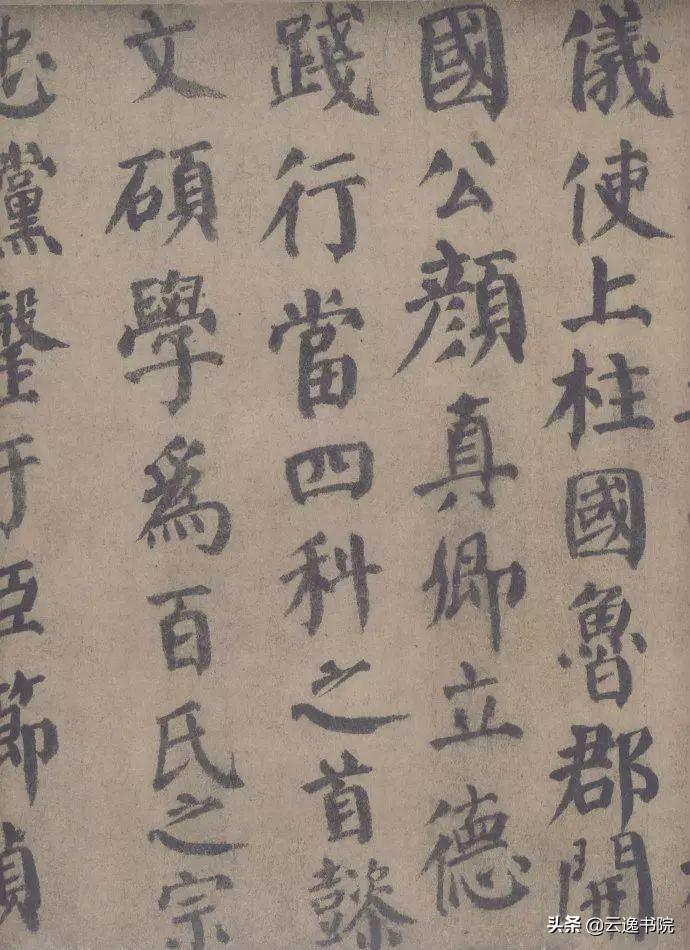 儀使上柱國魯郡開
國公顔真卿立德
踐行當四科之首懿
文碩學爲百氏之宗
忠讜罄于臣節貞
头条 @云逸书院